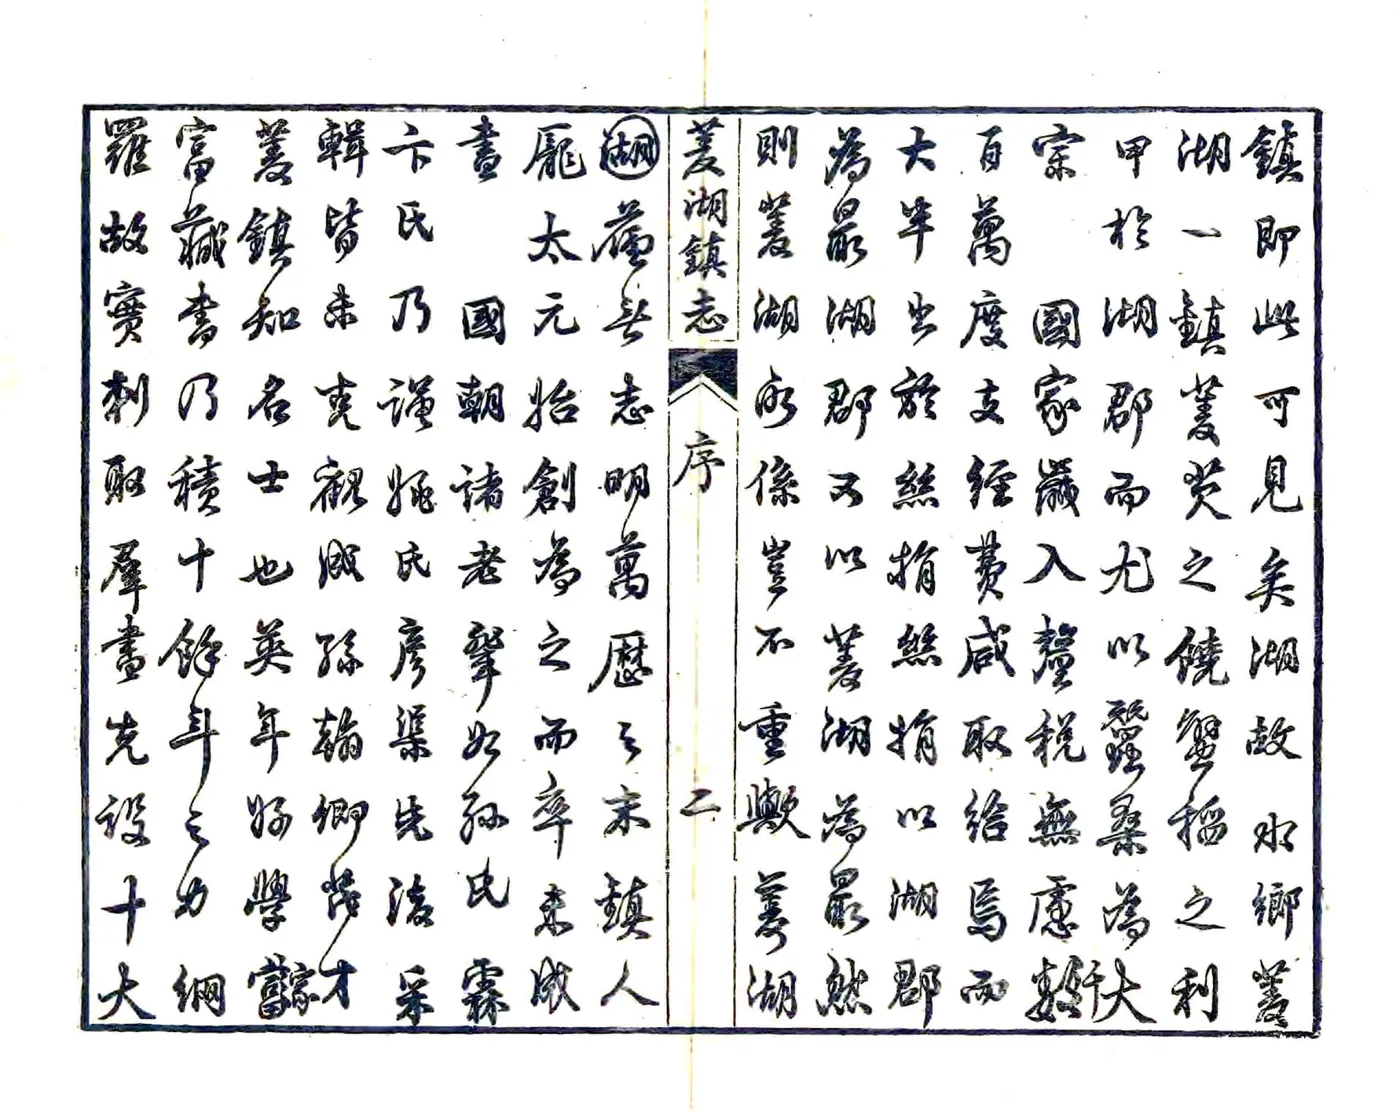 鎮即此可見矣湖故水鄉菱
湖一鎮菱芡之饒蟹稻之利
甲於湖郡而尤以蠶桑為大
宗　國家歲入釐稅無慮數千
百萬度支經費咸取給焉而
大半出於絲捐絲捐以湖郡
為最湖郡又以菱湖為最然
則菱湖所係豈不重歟菱湖
菱湖鎮志
序
二
湖舊無志明萬歷之末鎮人
龐太元始創為之而卒未成
書　國朝諸老輩如孫氏霖
卞氏乃謹姚氏彥渠先後采
輯皆未克觀成孫翰卿茂才
菱鎮知名士也英年好學家
富藏書乃積十餘年之力網
羅故實刺取群書先設十大